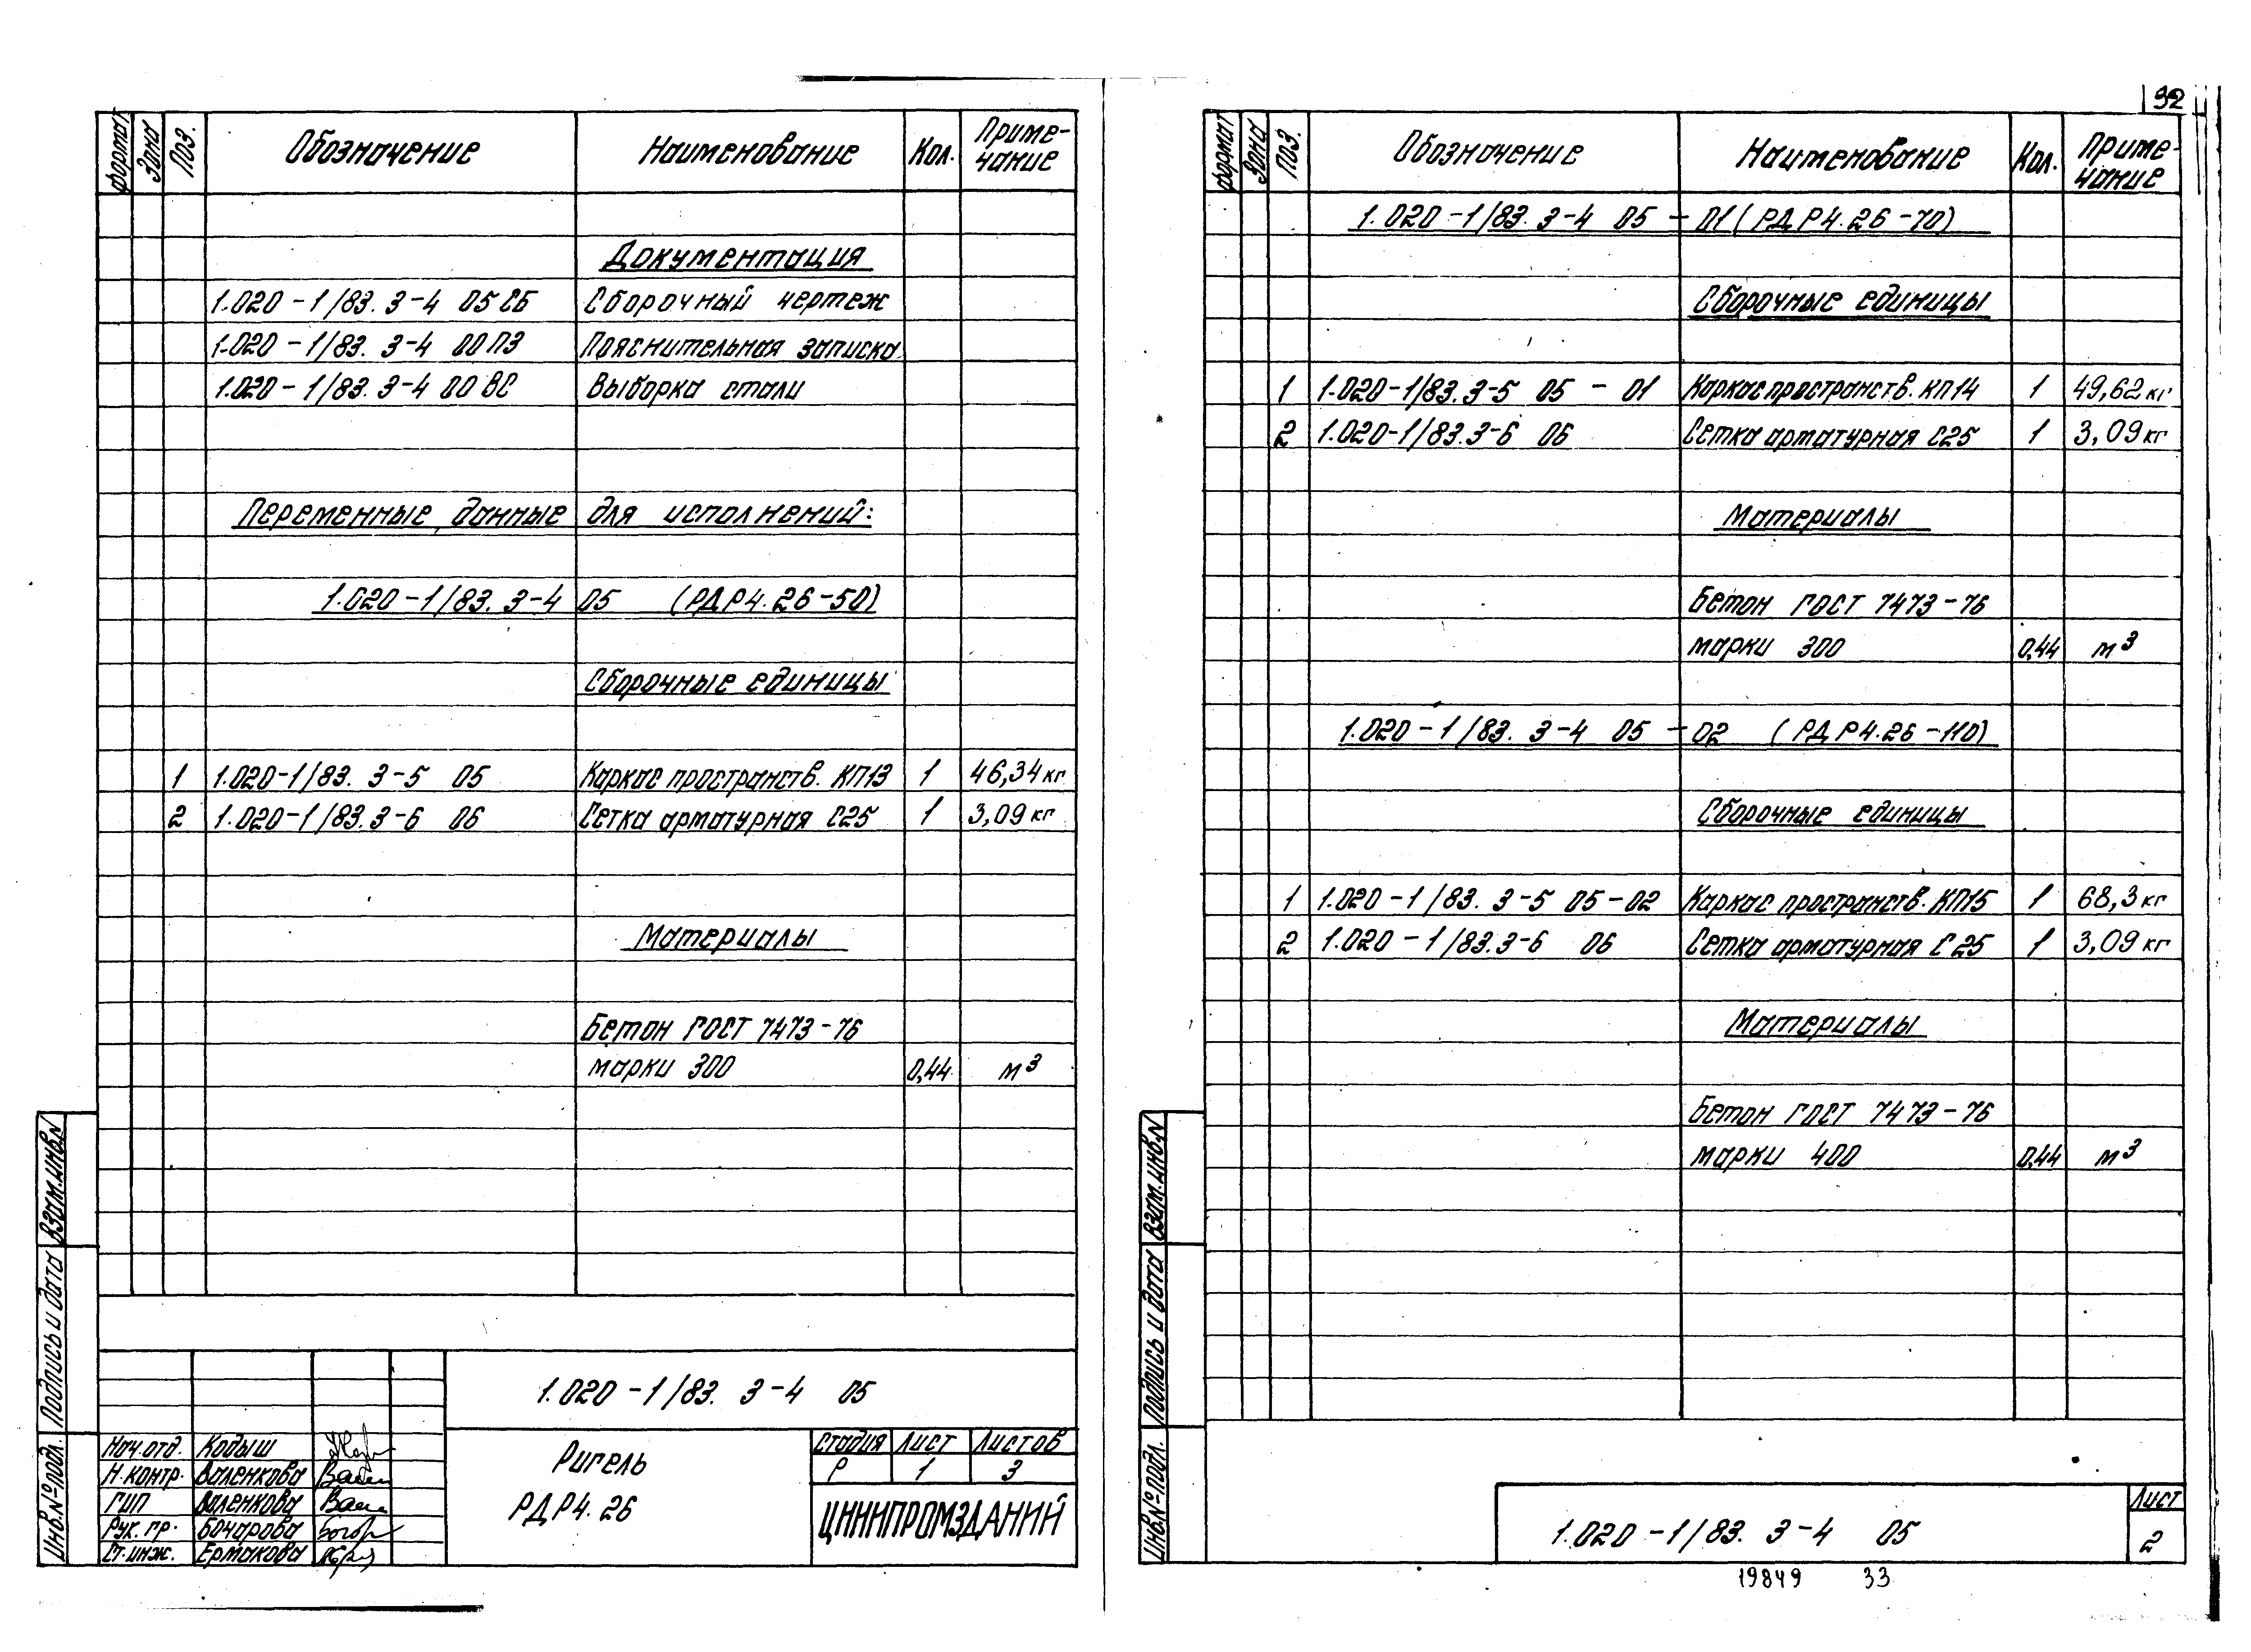 формат Зона Поз. Обозначение Наименование Кол. Приме-
чание
Документация
1.020-1/83. 3-4 05 СБ Сборочный чертеж
1.020-1/83. 3-4 00 ПЗ Пояснительная записка
1.020-1/83. 3-4 00 ВС Выборка стали
Переменные данные для исполнений:
1.020-1/83. 3-4 05 (РДР4.26-50)
Сборочные единицы
1 1.020-1/83. 3-5 05 Каркас пространств. КП13 1 46,34 кг
2 1.020-1/83. 3-6 06 Сетка арматурная С25 1 3,09 кг
Материалы
Бетон ГОСТ 7473-76
марки 300 0,44 м³
Взам.инв.N
Подпись и дата
Инв.№подл.
1.020-1/83. 3-4 05
Нач.отд. Кодыш
Н.контр. Валенкова
ГИП Валенкова
Рук.гр. Бочарова
Ст.инж. Ермакова
Ригель
РДР4.26
Стадия Лист Листов
Р 1 3
ЦНИИПРОМЗДАНИЙ
32
формат Зона Поз. Обозначение Наименование Кол. Приме-
чание
1.020-1/83. 3-4 05-01 (РДР4.26-70)
Сборочные единицы
1 1.020-1/83. 3-5 05-01 Каркас пространств. КП14 1 49,62 кг
2 1.020-1/83. 3-6 06 Сетка арматурная С25 1 3,09 кг
Материалы
Бетон ГОСТ 7473-76
марки 300 0,44 м³
1.020-1/83. 3-4 05-02 (РДР4.26-110)
Сборочные единицы
1 1.020-1/83. 3-5 05-02 Каркас пространств. КП15 1 68,3 кг
2 1.020-1/83. 3-6 06 Сетка арматурная С25 1 3,09 кг
Материалы
Бетон ГОСТ 7473-76
марки 400 0,44 м³
Взам.инв.N
Подпись и дата
Инв.№подл.
1.020-1/83. 3-4 05
Лист
2
19849 33